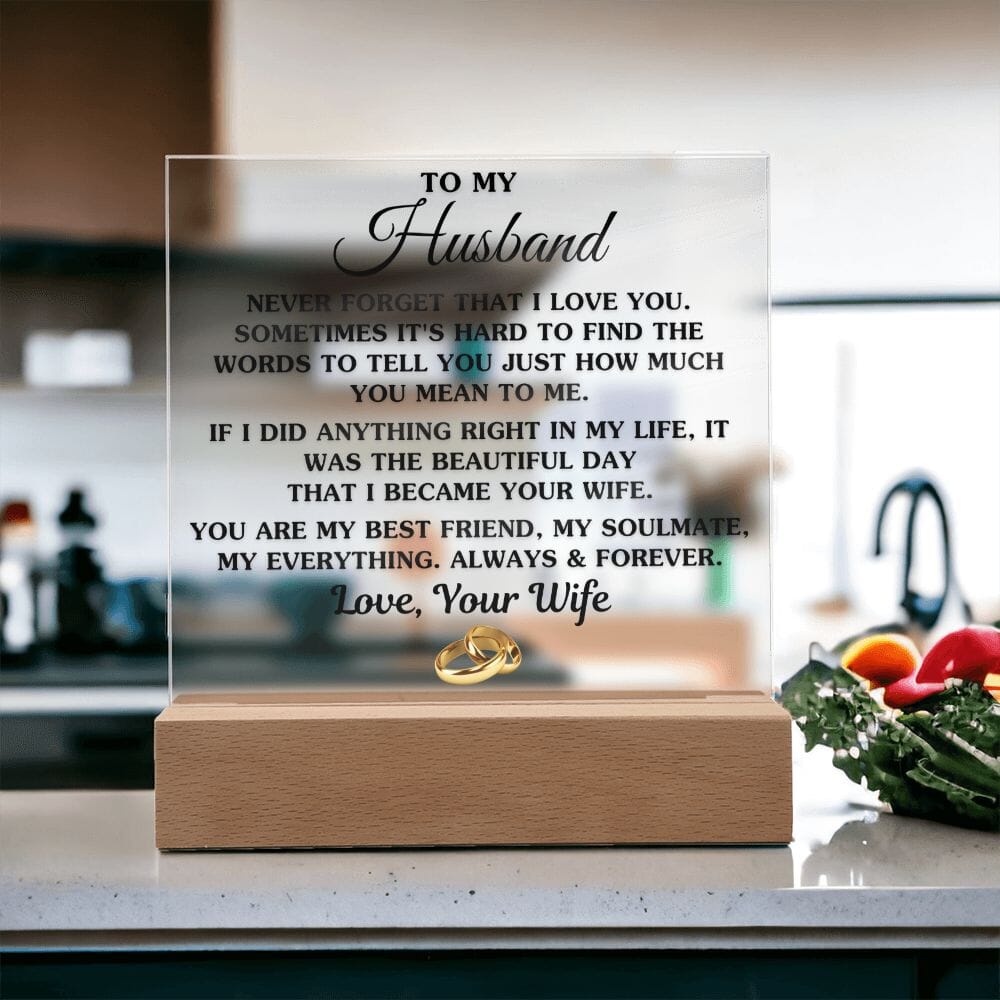 TO MY
Husband
NEVER FORGET THAT I LOVE YOU.
SOMETIMES IT'S HARD TO FIND THE
WORDS TO TELL YOU JUST HOW MUCH
YOU MEAN TO ME.
IF I DID ANYTHING RIGHT IN MY LIFE, IT
WAS THE BEAUTIFUL DAY
THAT I BECAME YOUR WIFE.
YOU ARE MY BEST FRIEND, MY SOULMATE,
MY EVERYTHING. ALWAYS & FOREVER.
Love, Your Wife